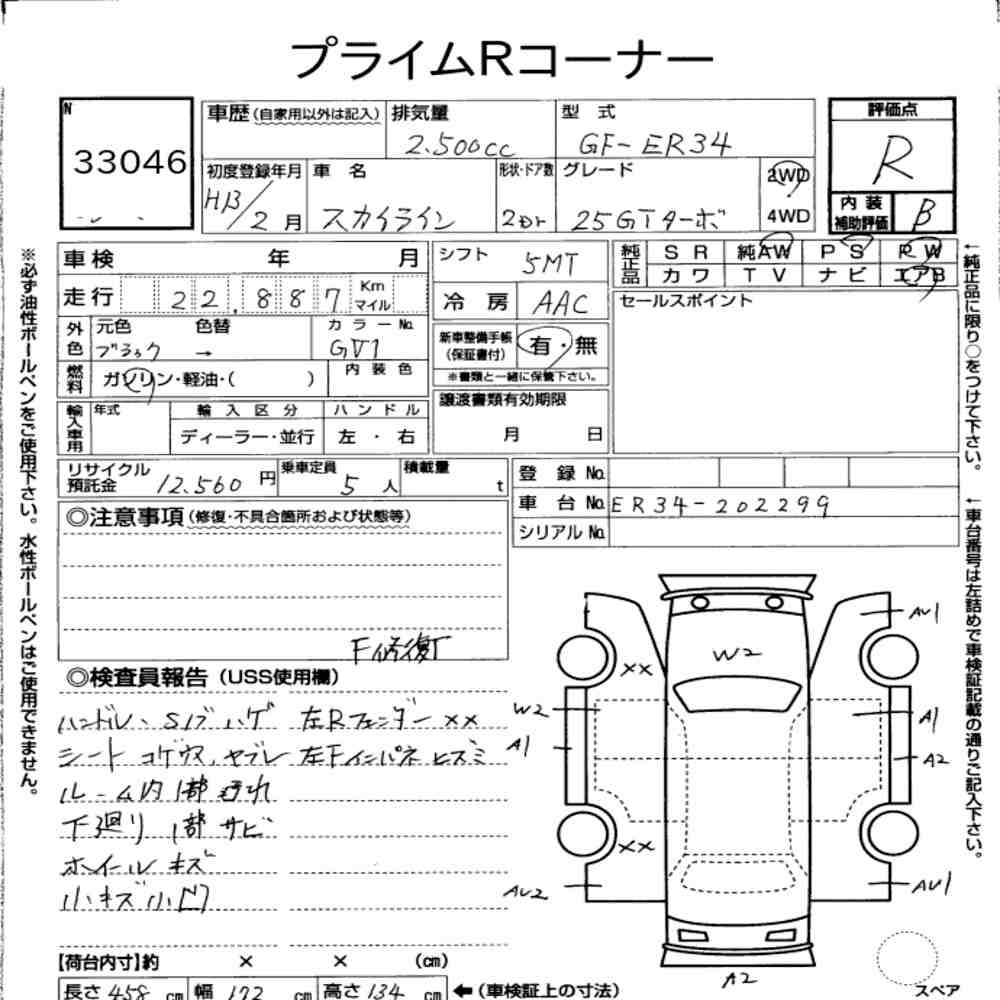 プライムRコーナー
N
33046
車歴 (自家用以外は記入)
排気量
2.500cc
型 式
GF-ER34
評価点
R
初度登録年月
H13/2 月
車 名
スカイライン
形状・ドア数
2Dr
グレード
25GTターボ
2WD
4WD
内 装
補助評価
B
車検 年 月
シフト
5MT
純正品
S R 純AW P S P W
カワ T V ナビ エアB
走行 22,887 Km マイル
冷 房 AAC
セールスポイント
外色
元色 色替
ブラック →
カラーNo.
GV1
新車整備手帳
(保証書付)
有・無
※書類と一緒に保管下さい。
燃料
ガソリン・軽油・( )
内 装 色
譲渡書類有効期限
月 日
輸入車用
年式
輸 入 区 分
ハ ン ド ル
ディーラー・並行
左 ・ 右
リサイクル
預託金
12.560 円
乗車定員
5 人
積載量
t
登 録 No.
車 台 No. ER34-202299
シリアル No.
◎注意事項 (修復・不具合箇所および状態等)
F修復
◎検査員報告 (USS使用欄)
ハンドル、Sノブ ハゲ 左Rフェンダー××
シート コゲ穴、ヤブレ 左Fインパネ ヒズミ
ルーム内 1部 汚れ
下廻り 1部 サビ
ホイール キズ
小キズ小凹
AU1
××
W2
W2
A1
A1
A2
××
AU2
AU1
A2
スペア
【荷台内寸】約 × × (cm)
長さ 458 cm 幅 172 cm 高さ 134 cm ←(車検証上の寸法)
※必ず油性ボールペンをご使用下さい。水性ボールペンはご使用できません。
←純正品に限り○をつけて下さい。
←車台番号は左詰めで車検証記載の通りご記入下さい。